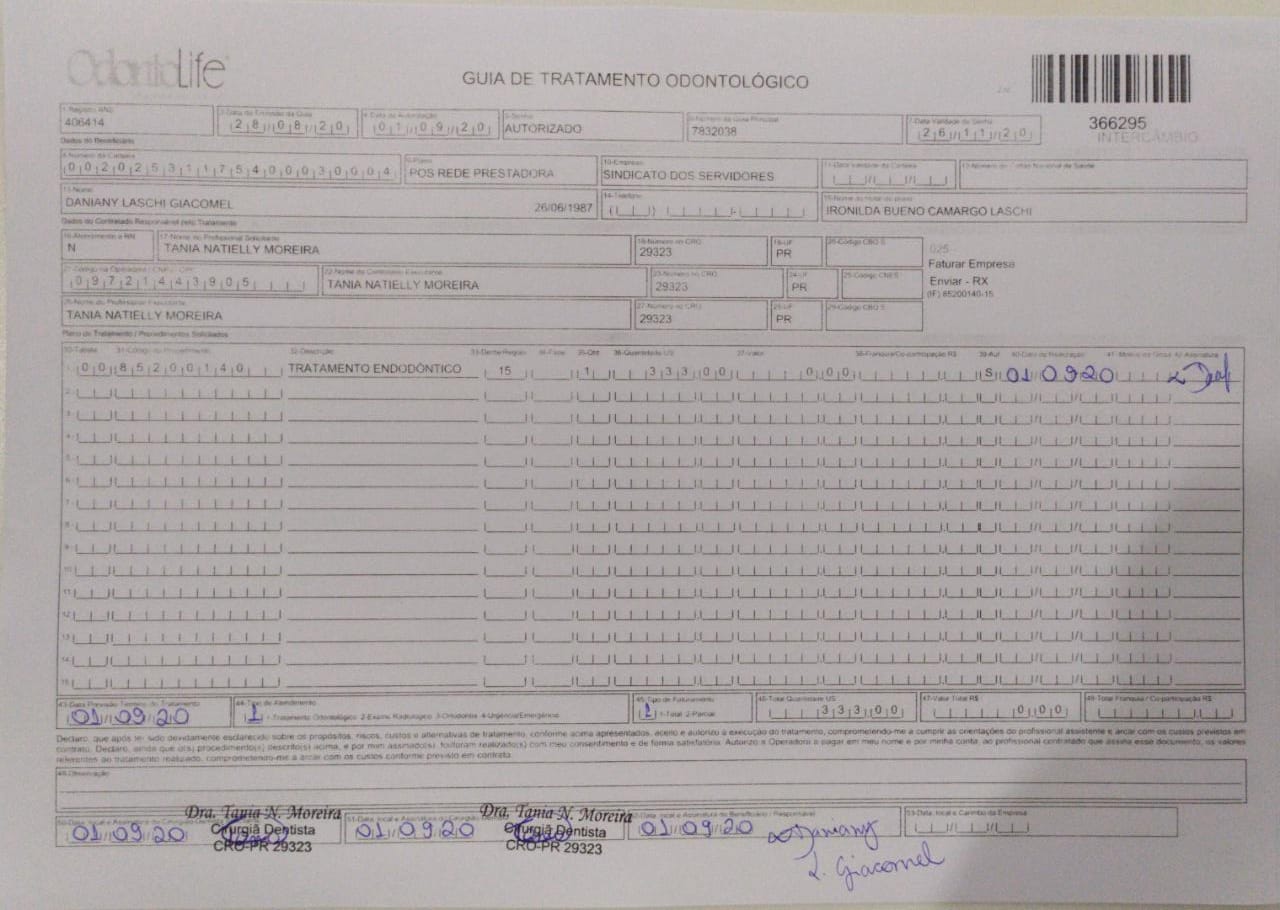 OdontoLife
GUIA DE TRATAMENTO ODONTOLÓGICO
366295
INTERCÂMBIO
1-Registro ANS
406414
2-Data de Emissão da Guia
28/08/20
4-Data de Autorização
01/09/20
5-Senha
AUTORIZADO
6-Número da Guia Principal
7832038
7-Data Validade da Senha
26/11/20
Dados do Beneficiário
8-Número da Carteira
00202531175400030004
9-Plano
POS REDE PRESTADORA
10-Empresa
SINDICATO DOS SERVIDORES
11-Data Validade da Carteira
12-Número do Cartão Nacional de Saúde
13-Nome
DANIANY LASCHI GIACOMEL 26/06/1987
14-Telefone
15-Nome do titular do plano
IRONILDA BUENO CAMARGO LASCHI
Dados do Contratado Responsável pelo Tratamento
16-Atendimento a RN
N
17-Nome do Profissional Solicitante
TANIA NATIELLY MOREIRA
18-Número no CRO
29323
19-UF
PR
20-Código CBO S
025
Faturar Empresa
Enviar - RX
(IF) 85200140-15
21-Código na Operadora / CNPJ / CPF
09721443905
22-Nome do Contratado Executante
TANIA NATIELLY MOREIRA
23-Número no CRO
29323
24-UF
PR
25-Código CNES
26-Nome do Profissional Executante
TANIA NATIELLY MOREIRA
27-Número no CRO
29323
28-UF
PR
29-Código CBO S
Plano de Tratamento / Procedimentos Solicitados
30-Tabela 31-Código do Procedimento 32-Descrição 33-Dente/Região 34-Face 35-Qtd 36-Quantidade US 37-Valor 38-Franquia/Co-participação R$ 39-Aut 40-Data de Realização 41-Motivo da Glosa 42-Assinatura
1- 00 85200140 TRATAMENTO ENDODÔNTICO 15 1 333 00 0 00 S 01 09 20
2-
3-
4-
5-
6-
7-
8-
9-
10-
11-
12-
13-
14-
15-
43-Data Previsão Término do Tratamento
01/09/20
44-Tipo de Atendimento
1 1-Tratamento Odontológico 2-Exame Radiológico 3-Ortodontia 4-Urgência/Emergência
45-Tipo de Faturamento
1 1-Total 2-Parcial
46-Total Quantidade US
333 00
47-Valor Total R$
0 00
48-Total Franquia / Co-participação R$
Declaro, que após ler sido devidamente esclarecido sobre os propósitos, riscos, custos e alternativas de tratamento, conforme acima apresentados, aceito e autorizo a execução do tratamento, comprometendo-me a cumprir as orientações do profissional assistente e arcar com os custos previstos em
contrato. Declaro, ainda que o(s) procedimento(s) descrito(s) acima, e por mim assinado(s), foi/foram realizado(s) com meu consentimento e de forma satisfatória. Autorizo a Operadora a pagar em meu nome e por minha conta, ao profissional contratado que assina esse documento, os valores
referentes ao tratamento realizado, comprometendo-me a arcar com os custos conforme previsto em contrato.
49-Observação
50-Data, local e Assinatura do Cirurgião-Dentista
01/09/20
Dra. Tania N. Moreira
Cirurgiã Dentista
CRO-PR 29323
51-Data, local e Assinatura do Cirurgião-Dentista
01/09/20
Dra. Tania N. Moreira
Cirurgiã Dentista
CRO-PR 29323
52-Data, local e Assinatura do Beneficiário / Responsável
01/09/20
Daniany
L. Giacomel
53-Data, local e Carimbo da Empresa